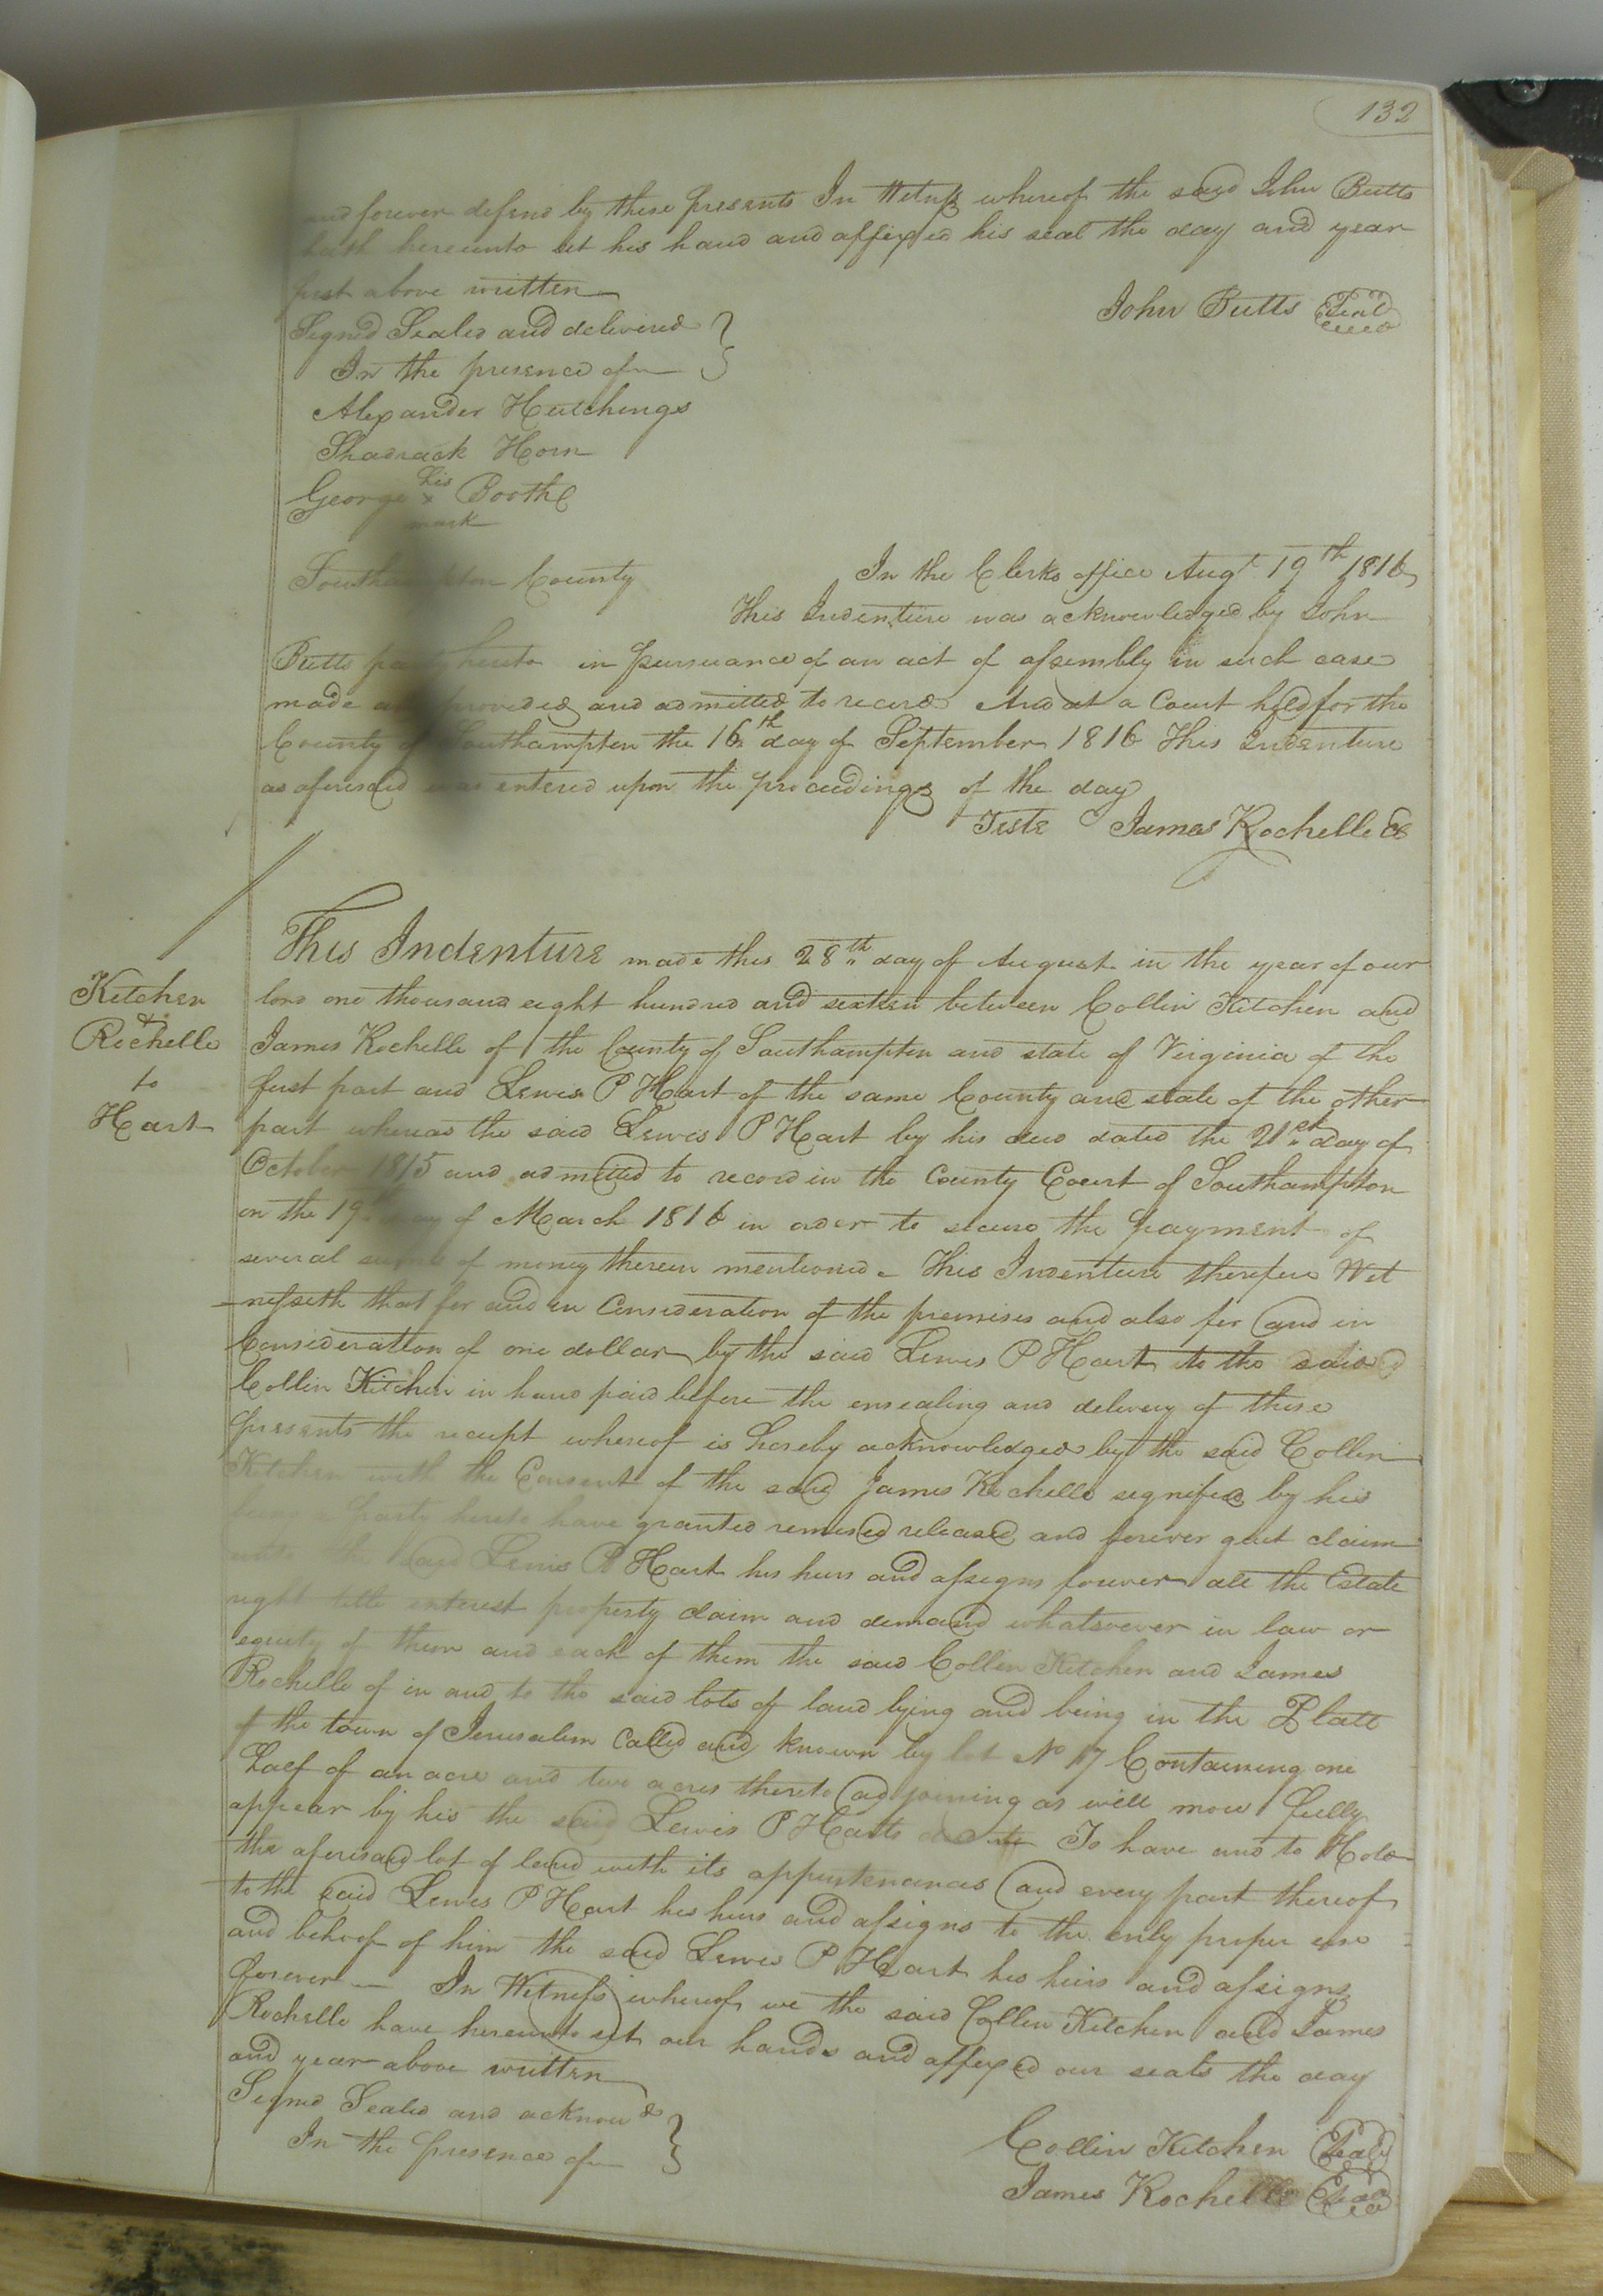 132
and forever defend by these presents In Witness whereof the said John Butts
hath hereunto set his hand and affixed his seal the day and year
first above written
John Butts Seal
Signd Sealed and delivered
In the presence of
Alexander Hutchings
Shadrack Horn
his
George x Boothe
mark
Southampton County
In the Clerks office Augt. 19th 1816
This Indenture was acknowledged by John
Butts party hereto in pursuance of an act of assembly in such case
made and provided and admitted to record And at a Court held for the
County of Southampton the 16th day of September 1816 This Indenture
as aforesaid was entered upon the proceedings of the day
Teste James Rochelle
Kitchen
&
Rochelle
to
Hart
This Indenture made this 28th day of August in the year of our
lord one thousand eight hundred and sixteen between Collin Kitchen and
James Rochelle of the County of Southampton and state of Virginia of the
first part and Lewis P Hart of the same County and state of the other
part whereas the said Lewis P Hart by his deed dated the 21st day of
October 1815 and admitted to record in the County Court of Southampton
on the 19th day of March 1816 in order to secure the payment of
several sums of money therein mentioned - This Indenture therefore Wit
nesseth that for and in Consideration of the premises and also for and in
Consideration of one dollar by the said Lewis P Hart to the said
Collin Kitchen in hand paid before the ensealing and delivery of these
presents the receipt whereof is hereby acknowledged by the said Collin
Kitchen with the Consent of the said James Rochelle signified by his
being a party hereto have granted remised released and forever quit claim
unto the said Lewis P Hart his heirs and assigns forever all the Estate
right title interest property claim and demand whatsoever in law or
equity of them and each of them the said Collin Kitchen and James
Rochelle of in and to the said lots of land lying and being in the Platt
of the town of Jerusalem Called and known by lot No 17 Containing one
half of an acre and two acres thereto adjoining as will more fully
appear by his the said Lewis P Harts To have and to Hold
the aforesaid lot of land with its appurtenances and every part thereof
to the said Lewis P Hart his heirs and assigns to the only proper use
and behoof of him the said Lewis P Hart his heirs and assigns
forever - In Witness whereof we the said Collin Kitchen and James
Rochelle have hereunto set our hands and affixed our seals the day
and year above written
Signd Sealed and acknowd
In the presence of
Collin Kitchen Seal
James Rochelle Seal